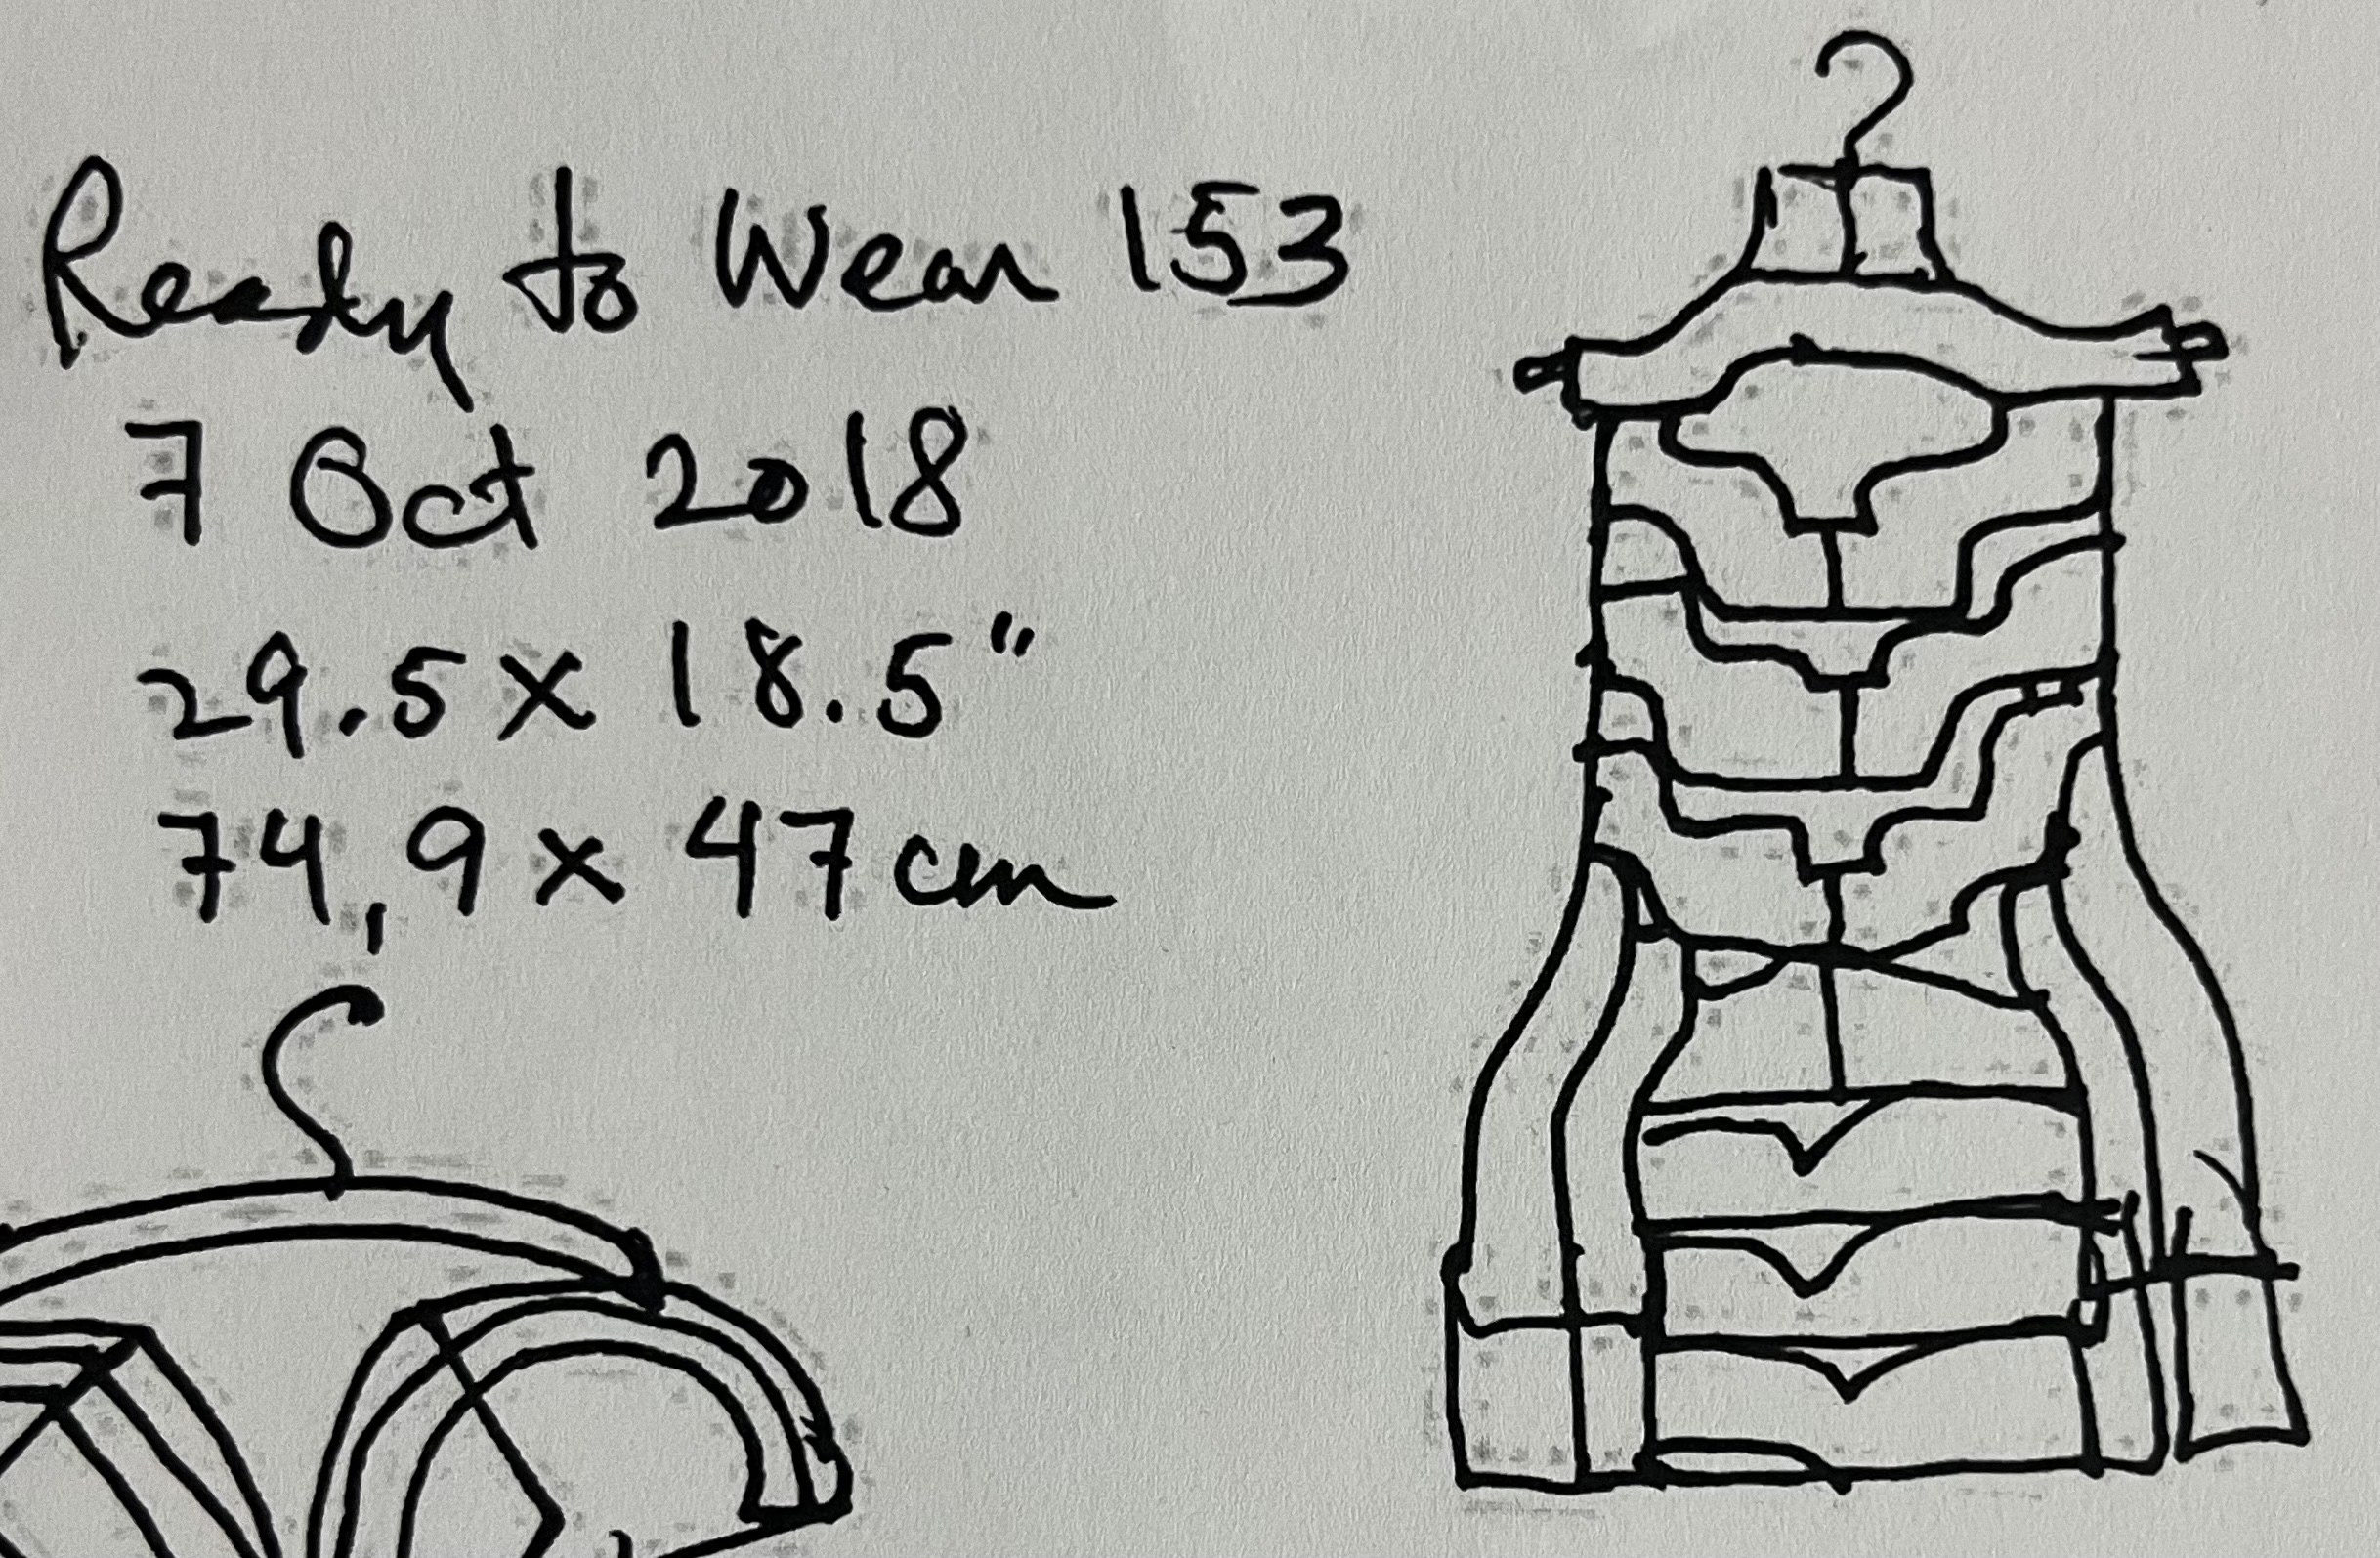 Ready to Wear 153
7 Oct 2018
29.5 x 18.5"
74,9 x 47 cm